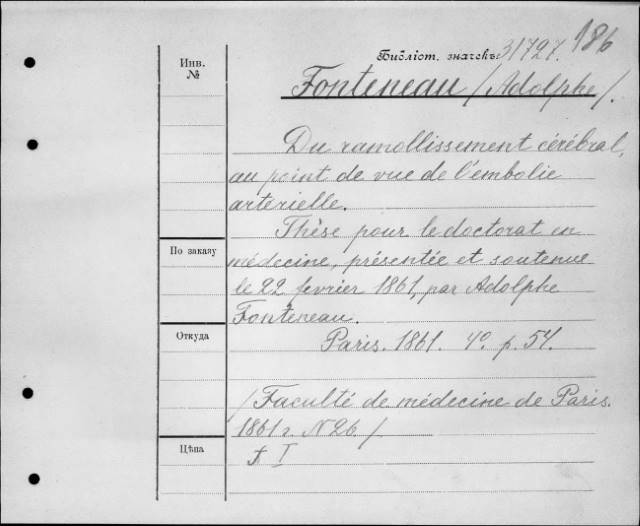 186
Библіот. значекъ 31727.
Инв.
№
Fonteneau /Adolphe/.
Du ramollissement cérébral,
au point de vue de l'embolie
arterielle.
Thèse pour le doctorat en
По заказу
médecine, présentée et soutenue
le 22 fevrier 1861, par Adolphe
Fonteneau.
Откуда
Paris. 1861. 4º. p. 54.
/Faculté de médecine de Paris.
1861 г. N 26./
Цѣна
I